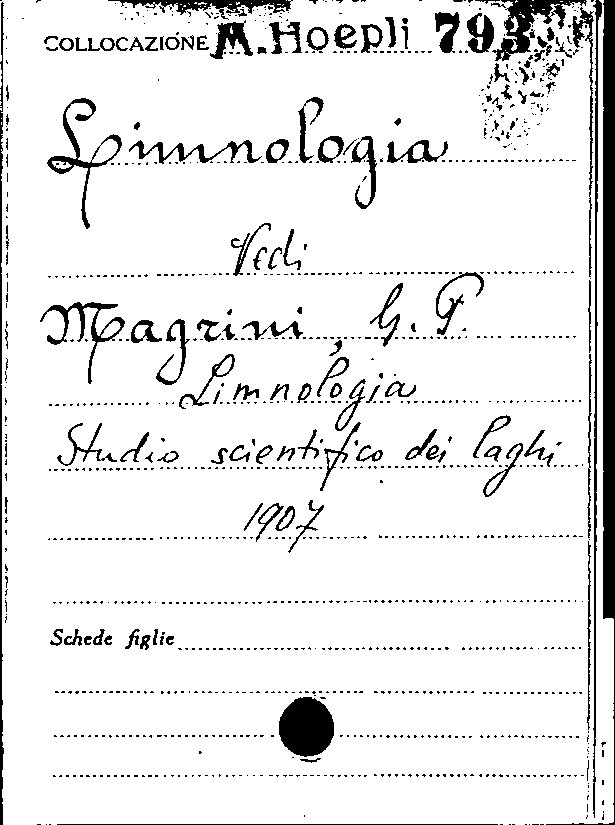 COLLOCAZIONE M. Hoepli
Limnologia
Vedi
Magrini, G. P.
Limnologia
Studio scientifico dei laghi
1907
Schede figlie